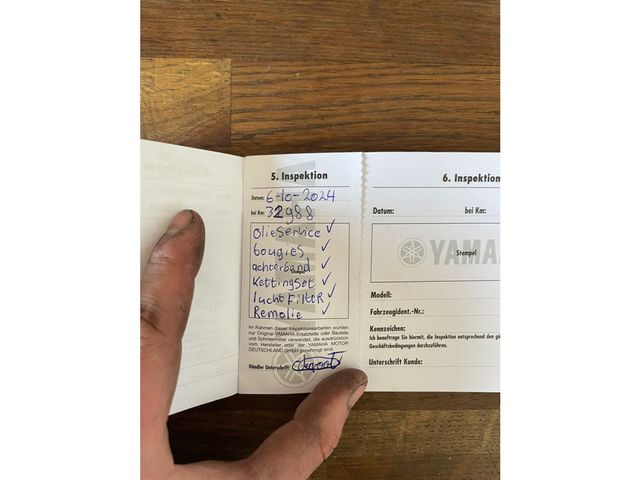 5. Inspektion
Datum: 6-10-2024
bei Km: 32988
olieservice ✓
bougies ✓
achterband ✓
Stempel
Kettingset ✓
luchtfilter ✓
Remolie ✓
Im Rahmen dieser Inspektionsarbeiten wurden
nur Original-YAMAHA-Ersatzteile oder Bauteile
und Schmiermittel verwendet, die ausdrücklich
vom Hersteller oder der YAMAHA MOTOR
DEUTSCHLAND GmbH genehmigt sind.
Händler Unterschrift:
YAMAHA
6. Inspektion
Datum: bei Km:
YAMAHA
Stempel
Modell:
Fahrzeugident.-Nr.:
Kennzeichen:
Ich beauftrage Sie hiermit, die Inspektion entsprechend den
Geschäftsbedingungen durchzuführen.
Unterschrift Kunde: